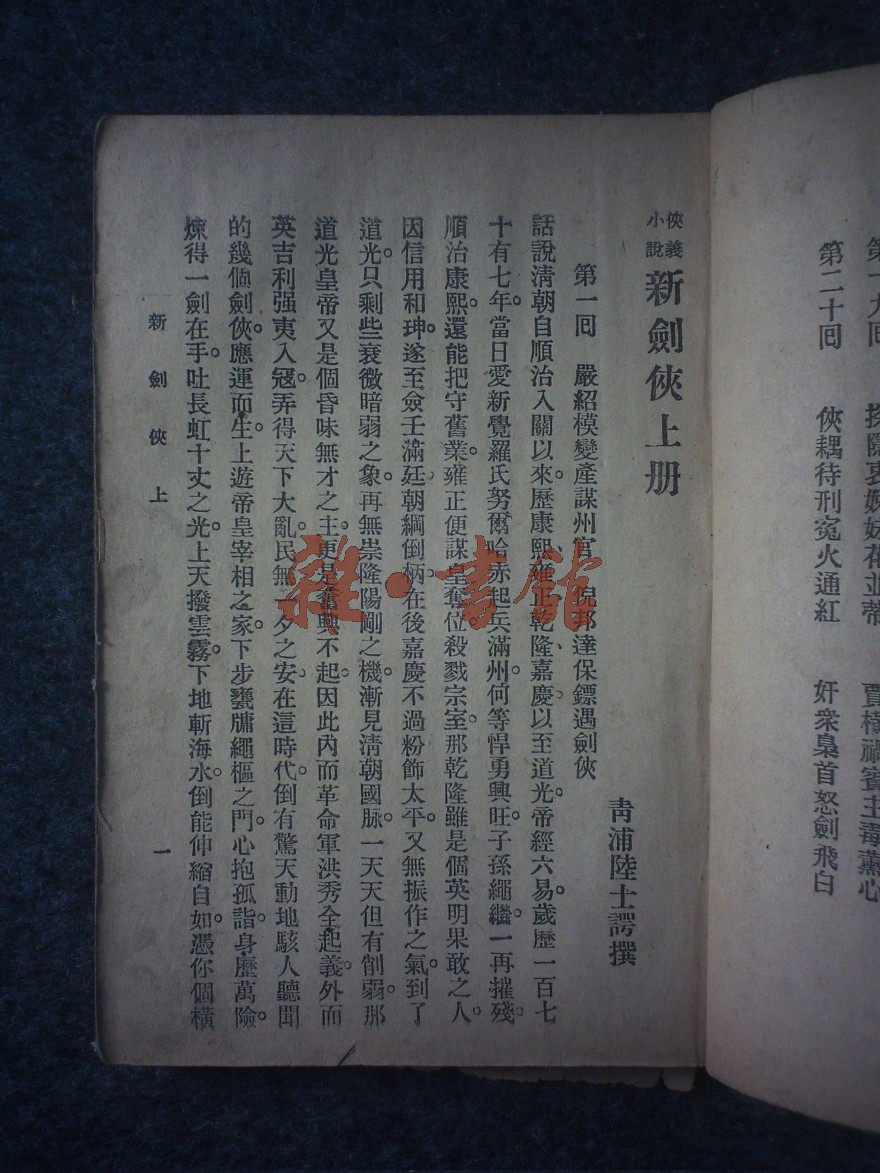 第十九回 探隱衷姊妹花並蒂 賈橫禍賓主毒薰心
第二十回 俠耦待刑寃火通紅 奸衆梟首怒劍飛白
俠義小說 新劍俠上册
青浦陸士諤撰
第一回 嚴紹模變產謀州官 倪邦達保鏢遇劍俠
話說淸朝自順治入關以來。歷康熙、雍正、乾隆、嘉慶、以至道光。帝經六易。歲歷一百七
十有七年。當日愛新覺羅氏努爾哈赤起兵滿州。何等悍勇興旺。子孫繩繼。一再摧殘。
順治康熙。還能把守舊業。雍正便謀皇奪位。殺戮宗室。那乾隆雖是個英明果敢之人。
因信用和珅。遂至僉壬滿廷。朝綱倒柄。在後嘉慶不過粉飾太平。又無振作之氣。到了
道光。只剩些衰微暗弱之象。再無崇隆陽剛之機。漸見淸朝國脉。一天天但有削弱。那
道光皇帝又是個昏味無才之主。更是奮興不起。因此內而革命軍洪秀全起義。外而
英吉利强夷入寇。弄得天下大亂。民無一夕之安、在這時代。倒有驚天動地駭人聽聞
的幾個劍俠。應運而生。上遊帝皇宰相之家。下步甕牖繩樞之門。心抱孤詣。身歷萬險。
煉得一劍在手。吐長虹十丈之光。上天撥雲霧。下地斬海水。倒能伸縮自如。憑你個橫
新劍俠上 一
雜·書館